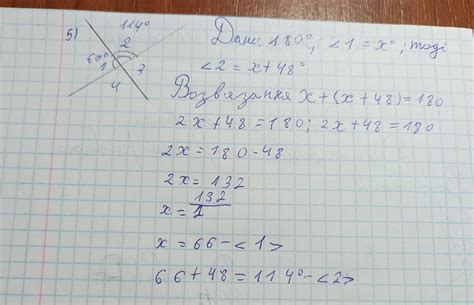 5)
114°
2
60°
1
3
4
Дано: 180°; ∠1 = x°; тоді
∠2 = x+48°
Возвязання x+(x+48)=180
2x+48=180; 2x+48=180
2x=180-48
2x= 132
132
x=
x = 66-<1>
66+48=114°-<2>